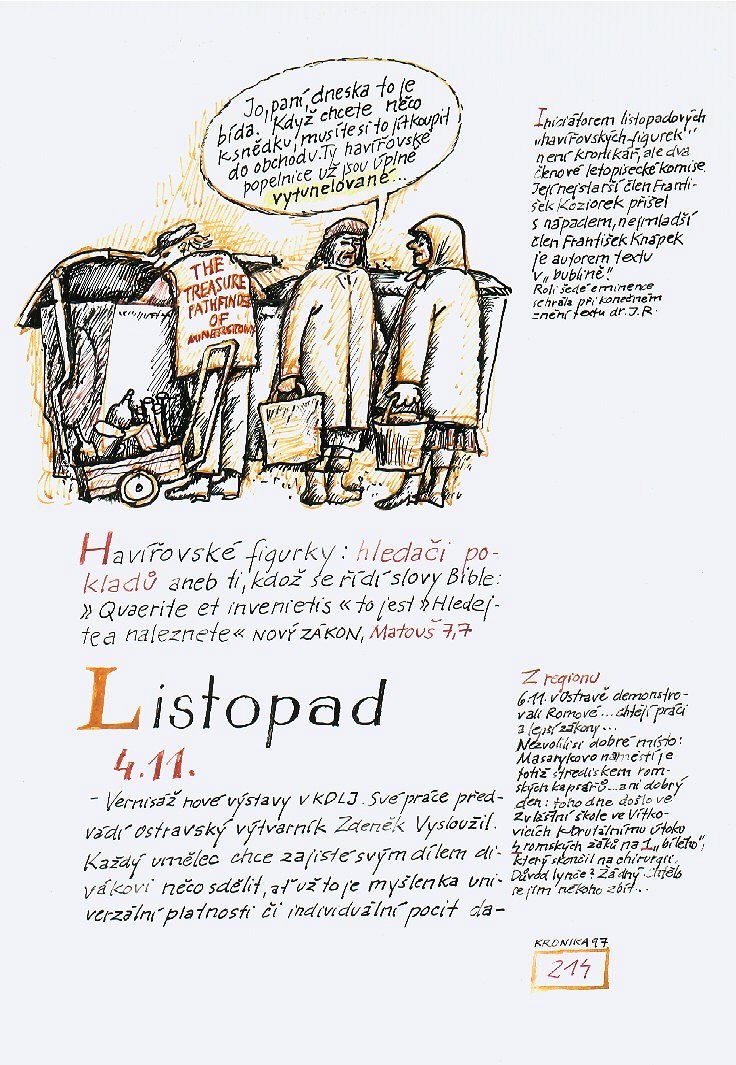 Jo, paní, dneska to je
bída. Když chcete něco
k snědku, musíte si to jít koupit
do obchodu. Ty havířovské
popelnice už jsou úplně
vytunelované...
THE
TREASURE
PATHFINDER
OF
Iniciátorem listopadových
„havířovských figurek"
není kronikář, ale dva
členové letopisecké komise.
Její nejstarší člen Franti-
šek Keziorek přišel
s nápadem, nejmladší
člen František Knápek
je autorem textu
v „bublině".
Roli šedé eminence
sehrála při konečném
znění textu dr. J.R.
Havířovské figurky: hledači po-
kladů aneb ti, kdož se řídí slovy Bible:
» Quaerite et invenietis « to jest » Hledej-
te a naleznete « NOVÝ ZÁKON, Matouš 7,7
Listopad
4.11.
- Vernisáž nové výstavy v KDLJ. Své práce před-
vádí ostravský výtvarník Zdeněk Vysloužil.
Každý umělec chce zajisté svým dílem di-
vákovi něco sdělit, ať už to je myšlenka uni-
verzální platnosti či individuální pocit da-
Z regionu
6.11. v Ostravě demonstro-
vali Romové... chtějí práci
a lepší zákony...
Nezvolili si dobré místo:
Masarykovo náměstí je
totiž střediskem rom-
ských kapsářů... ani dobrý
den: toho dne došlo ve
zvláštní škole ve Vítko-
vicích k brutálnímu útoku
4 romských žáků na 1 „bílého",
který skončil na chirurgii.
Důvod lynče? Žádný. Chtělo
se jim někoho zbít...
KRONIKA 97
214